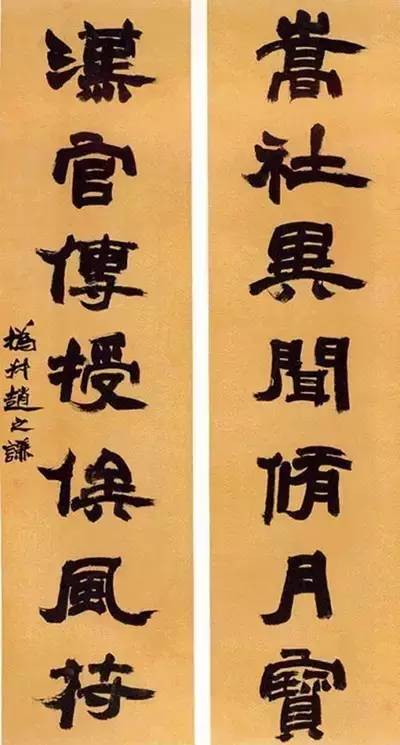 嵩社異聞脩月寶
漢官傳授候風符
撝叔趙之謙